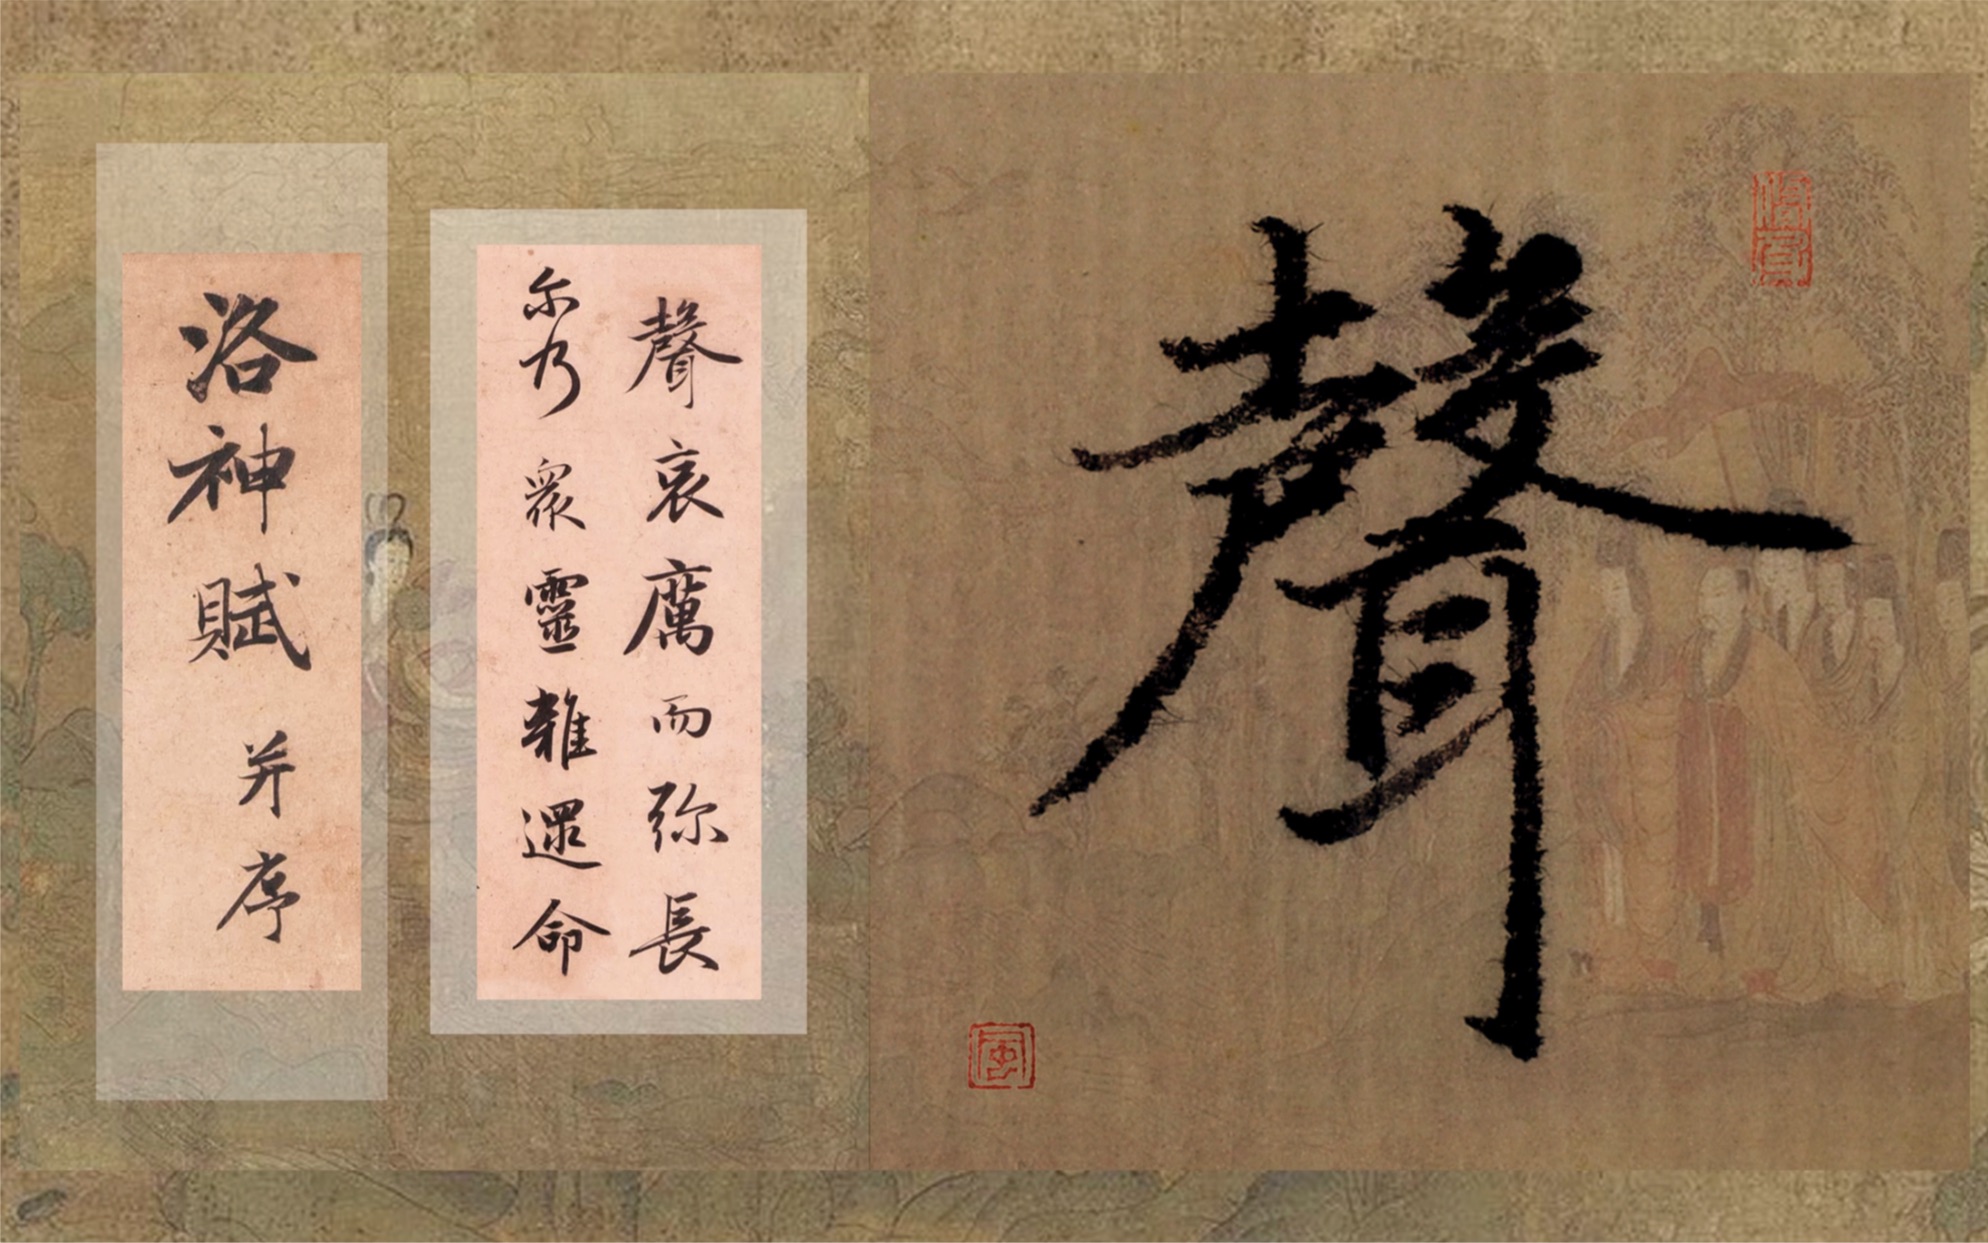 聲
聲哀厲而弥長
尒乃眾靈雜遝命
洛神賦并序